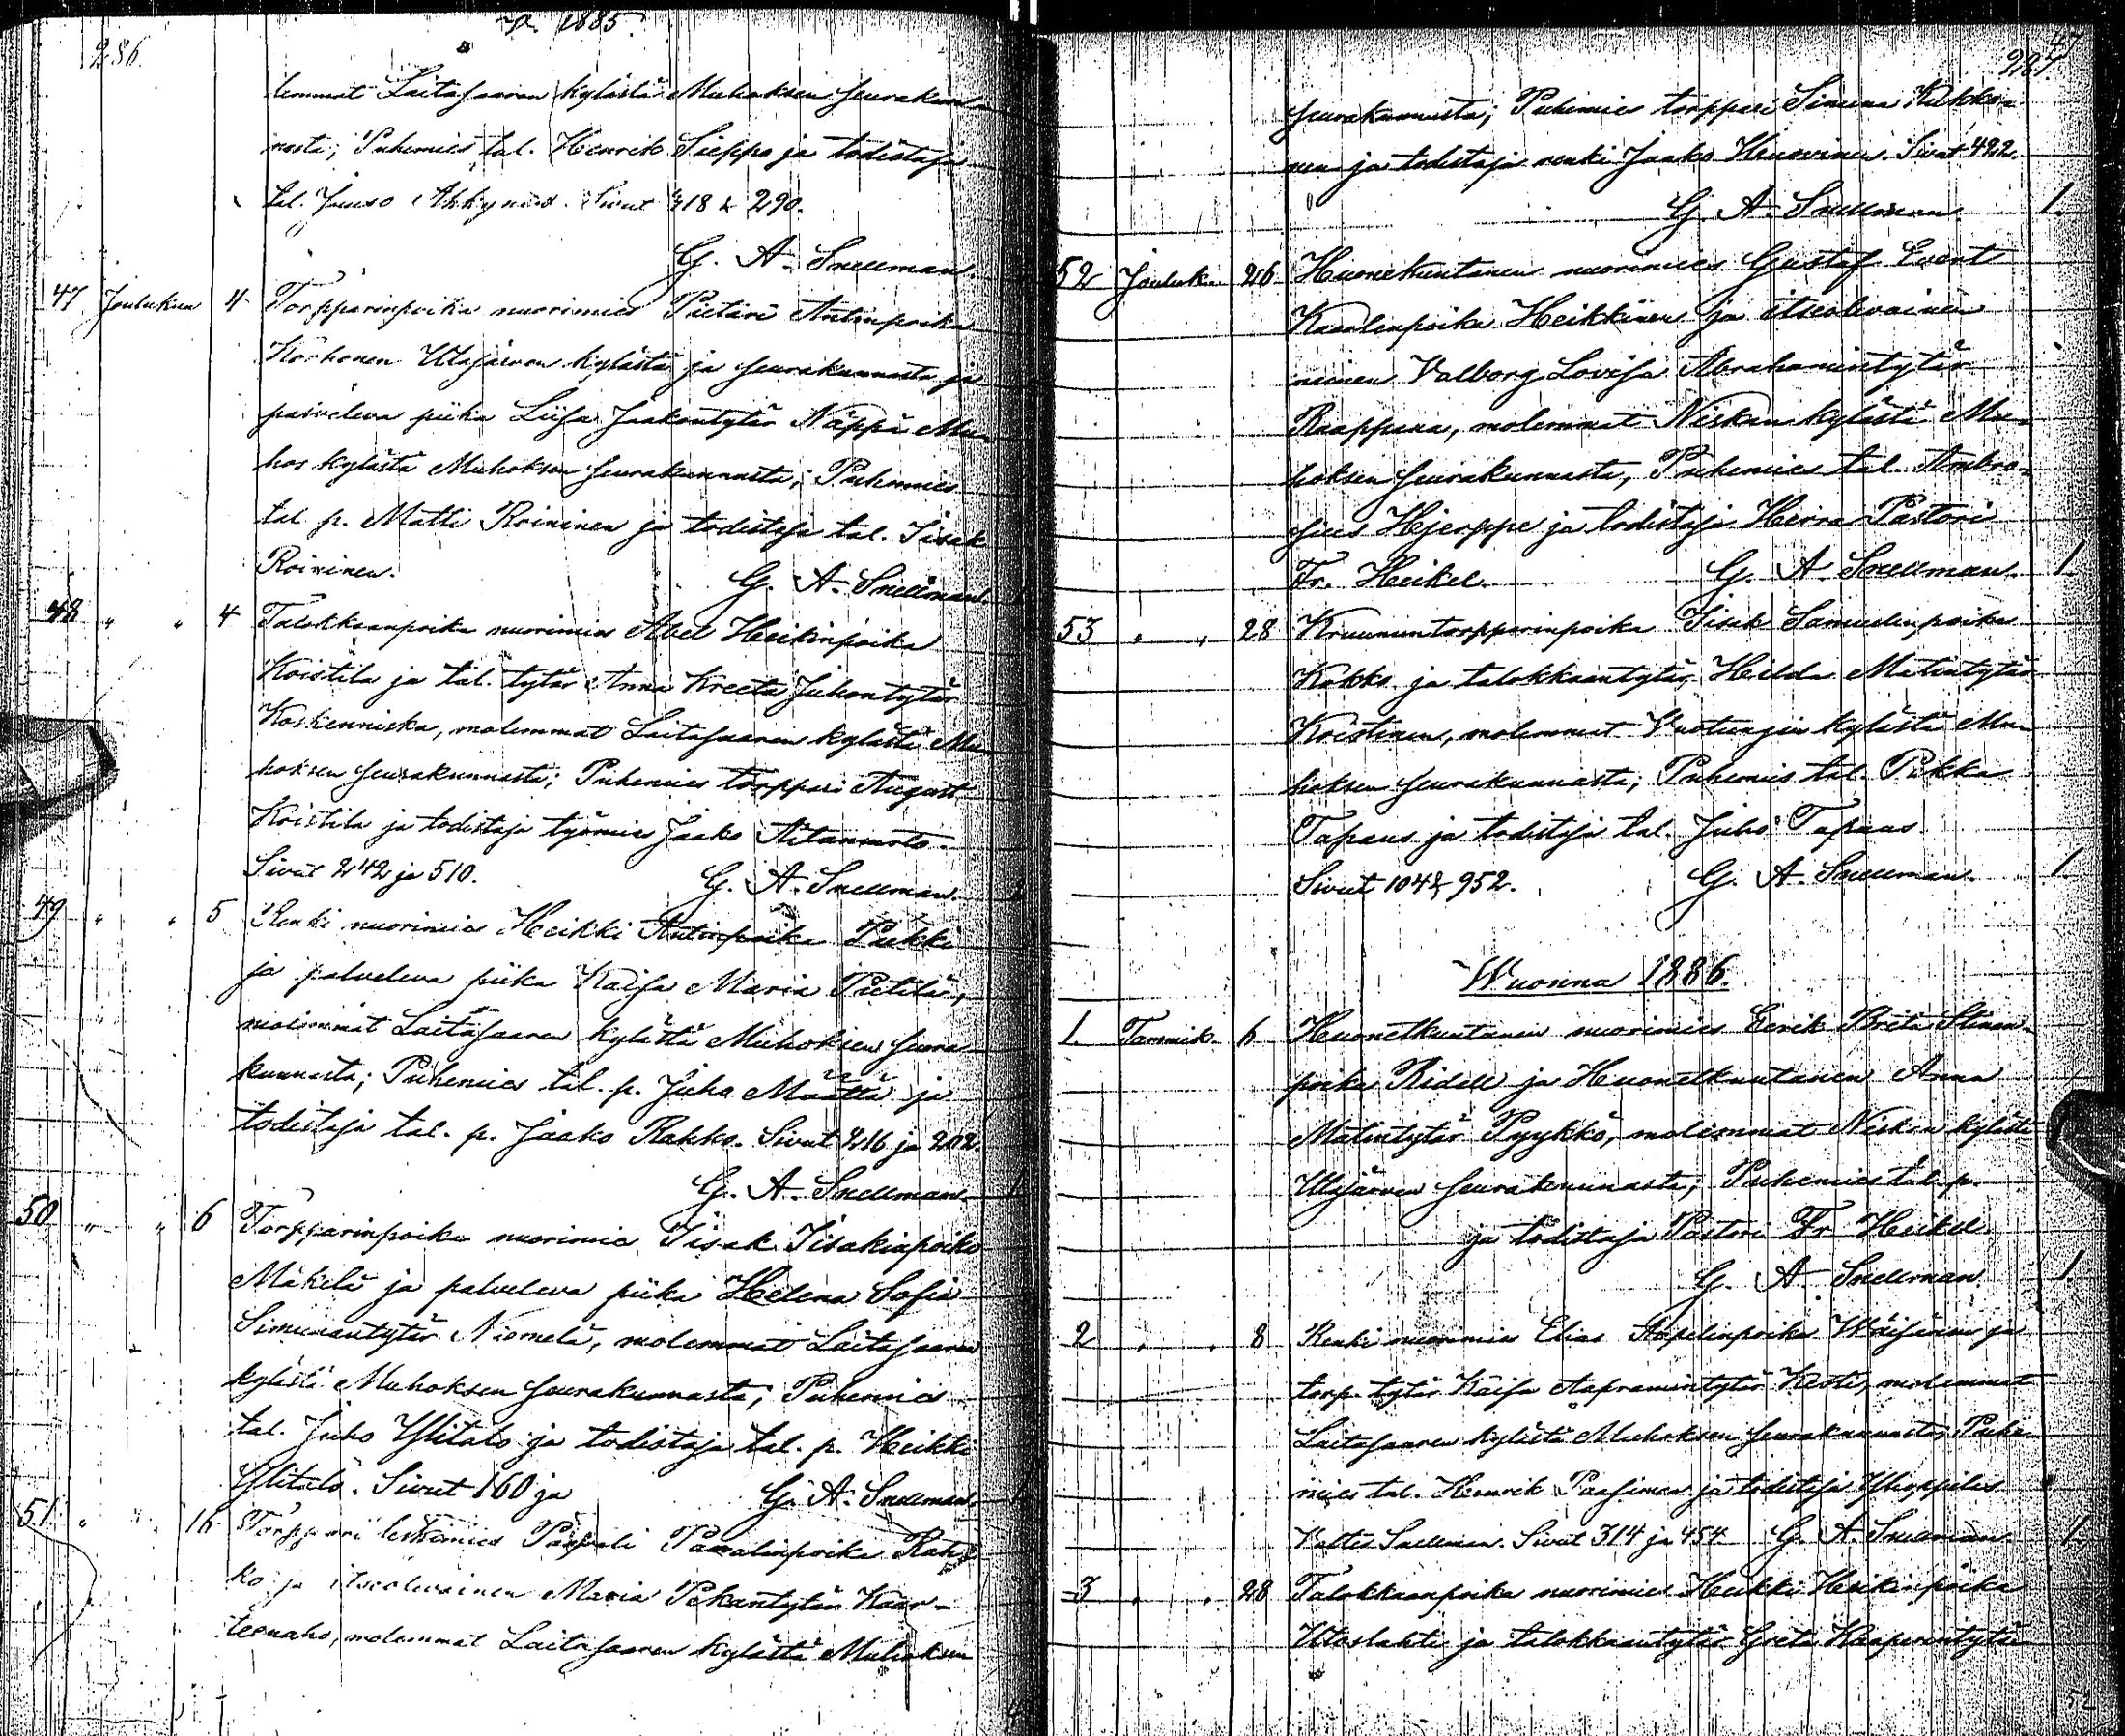 V. 1885.
286.
lemmat Laitasaaren kylästä Muhoksen seurakun-
nasta; Puhemies tal. Henrik Sieppo ja todistaja
tal. Juuso Ahkynen. Sivut 418 & 290.
G. A. Snellman.
47 Joulukuu 4 Torpparinpoika nuorimies Pietari Antinpoika
Korhonen Utajärven kylästä ja seurakunnasta ja
palveleva piika Liisa Jaakontytär Näppä Mu-
hos kylästä Muhoksen seurakunnasta; Puhemies
tal. p. Matti Roininen ja todistaja tal. Iisak
Roininen.
G. A. Snellman.
48 " " 4 Talokkaanpoika nuorimies Abel Heikinpoika
Koistila ja tal. tytär Anna Kreeta Juhontytär
Koskenniska, molemmat Laitasaaren kylästä Mu-
hoksen seurakunnasta; Puhemies torppari August
Koistila ja todistaja työmies Jaako
Sivut 242 ja 510. G. A. Snellman.
49 " " 5 Renki nuorimies Heikki Antinpoika Pukki
ja palveleva piika Kaisa Maria Pietilä,
molemmat Laitasaaren kylästä Muhoksen seura-
kunnasta; Puhemies tal. p. Juho Määttä ja
todistaja tal. p. Jaako Rahko. Sivut 416 ja 202.
G. A. Snellman. 1
50 " " 6 Torpparinpoika nuorimies Iisak Iisakinpoika
Mäkelä ja palveleva piika Helena Sofia
Simunantytär Niemelä, molemmat Laitasaaren
kylästä Muhoksen seurakunnasta; Puhemies
tal. Juho Ylitalo ja todistaja tal. p. Heikki
Ylitalo. Sivut 160 ja G. A. Snellman.
51 " " 16 Torppari leskimies Paavali Paavalinpoika Rah-
ko ja itseolevainen Maria Pekantytär Kaar-
teenaho, molemmat Laitasaaren kylästä Muhoksen
47
287.
seurakunnasta; Puhemies torppari Simuna Kukko-
nen ja todistaja renki Jaako Heinonen. Sivut 422.
G. A. Snellman. 1.
52 Jouluku. 26 Huonekuntanen nuorimies Gustaf Evert
Kaarlenpoika Heikkinen ja itseolevainen
nainen Valborg Lovisa Abrahamintytär
Raappana, molemmat Niskan kylästä Mu-
hoksen seurakunnasta, Puhemies tal. Ambro-
sius Hjerppe ja todistaja Herra Pastori
Fr. Heikel. G. A. Snellman. 1
53 " " 28 Kruununtorpparinpoika Iisak Samuelinpoika
Kokko ja talokkaantytär Hilda Matintytär
Koistinen, molemmat kylästä Mu-
hoksen seurakunnasta; Puhemies tal. Pekka
Tapans ja todistaja tal. Juho Tapans.
Sivut 104 & 952. G. A. Snellman. 1
Wuonna 1886.
1 Tammik. 6 Huonetkuntanen nuorimies Eerik Brita Stinan-
poika Ridell ja Huonetkuntanen Anna
Matintytär Pyykkö, molemmat Niskan kylästä
Utajärven seurakunnasta; Puhemies tal. p.
ja todistaja Pastori Fr. Heikel.
G. A. Snellman. 1.
2 " " 8 Renki nuorimies Elias Aapelinpoika Wäisänen ja
torp. tytär Kaisa Aapramintytär Kesti, molemmat
Laitasaaren kylästä Muhoksen seurakunnasta; Puhe-
mies tal. Henrik Paasinen ja todistaja Ylioppilas
Valter Snellman. Sivut 314 ja 454 G. A. Snellman. 1.
3 " " 28 Talokkaanpoika nuorimies Heikki Heikinpoika
Utoslahti ja talokkaantytär Greta Kaaperintytär
52